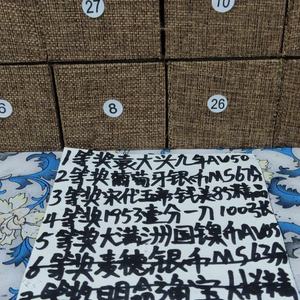 27
10
6
8
26
1等奖袁大头九年AU50
2等奖葡萄牙银币MS67分
3等奖宋代玉币钱美85精品
4等奖1953壹分一刀100张
5等奖大满洲国镍币AU05
6等奖麦穗分银币MS62分